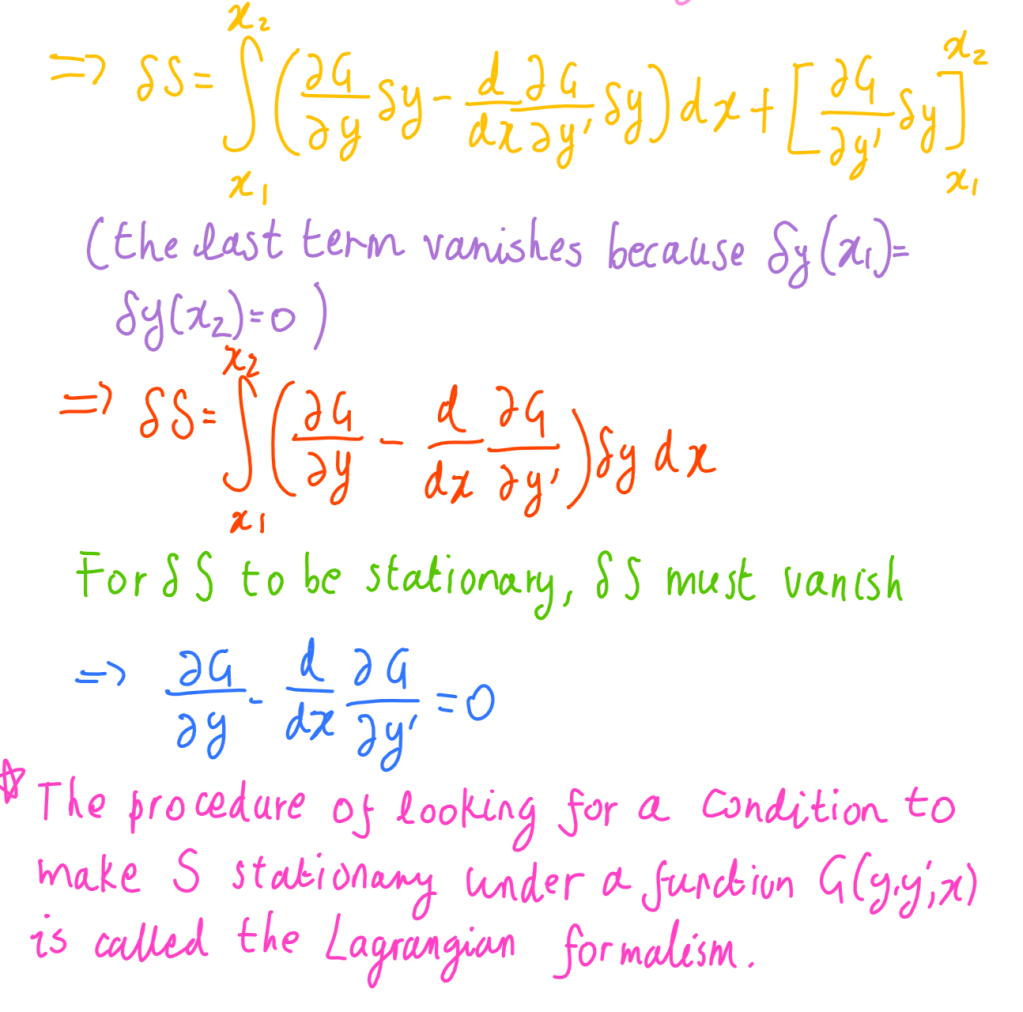 => δS = ∫_{x₁}^{x₂} (∂G/∂y δy - d/dx ∂G/∂y' δy) dx + [∂G/∂y' δy]_{x₁}^{x₂}
(the last term vanishes because δy(x₁)=
δy(x₂)=0)
=> δS = ∫_{x₁}^{x₂} (∂G/∂y - d/dx ∂G/∂y') δy dx
For δS to be stationary, δS must vanish
=> ∂G/∂y - d/dx ∂G/∂y' = 0
☆ The procedure of looking for a condition to
make S stationary under a function G(y,y',x)
is called the Lagrangian formalism.